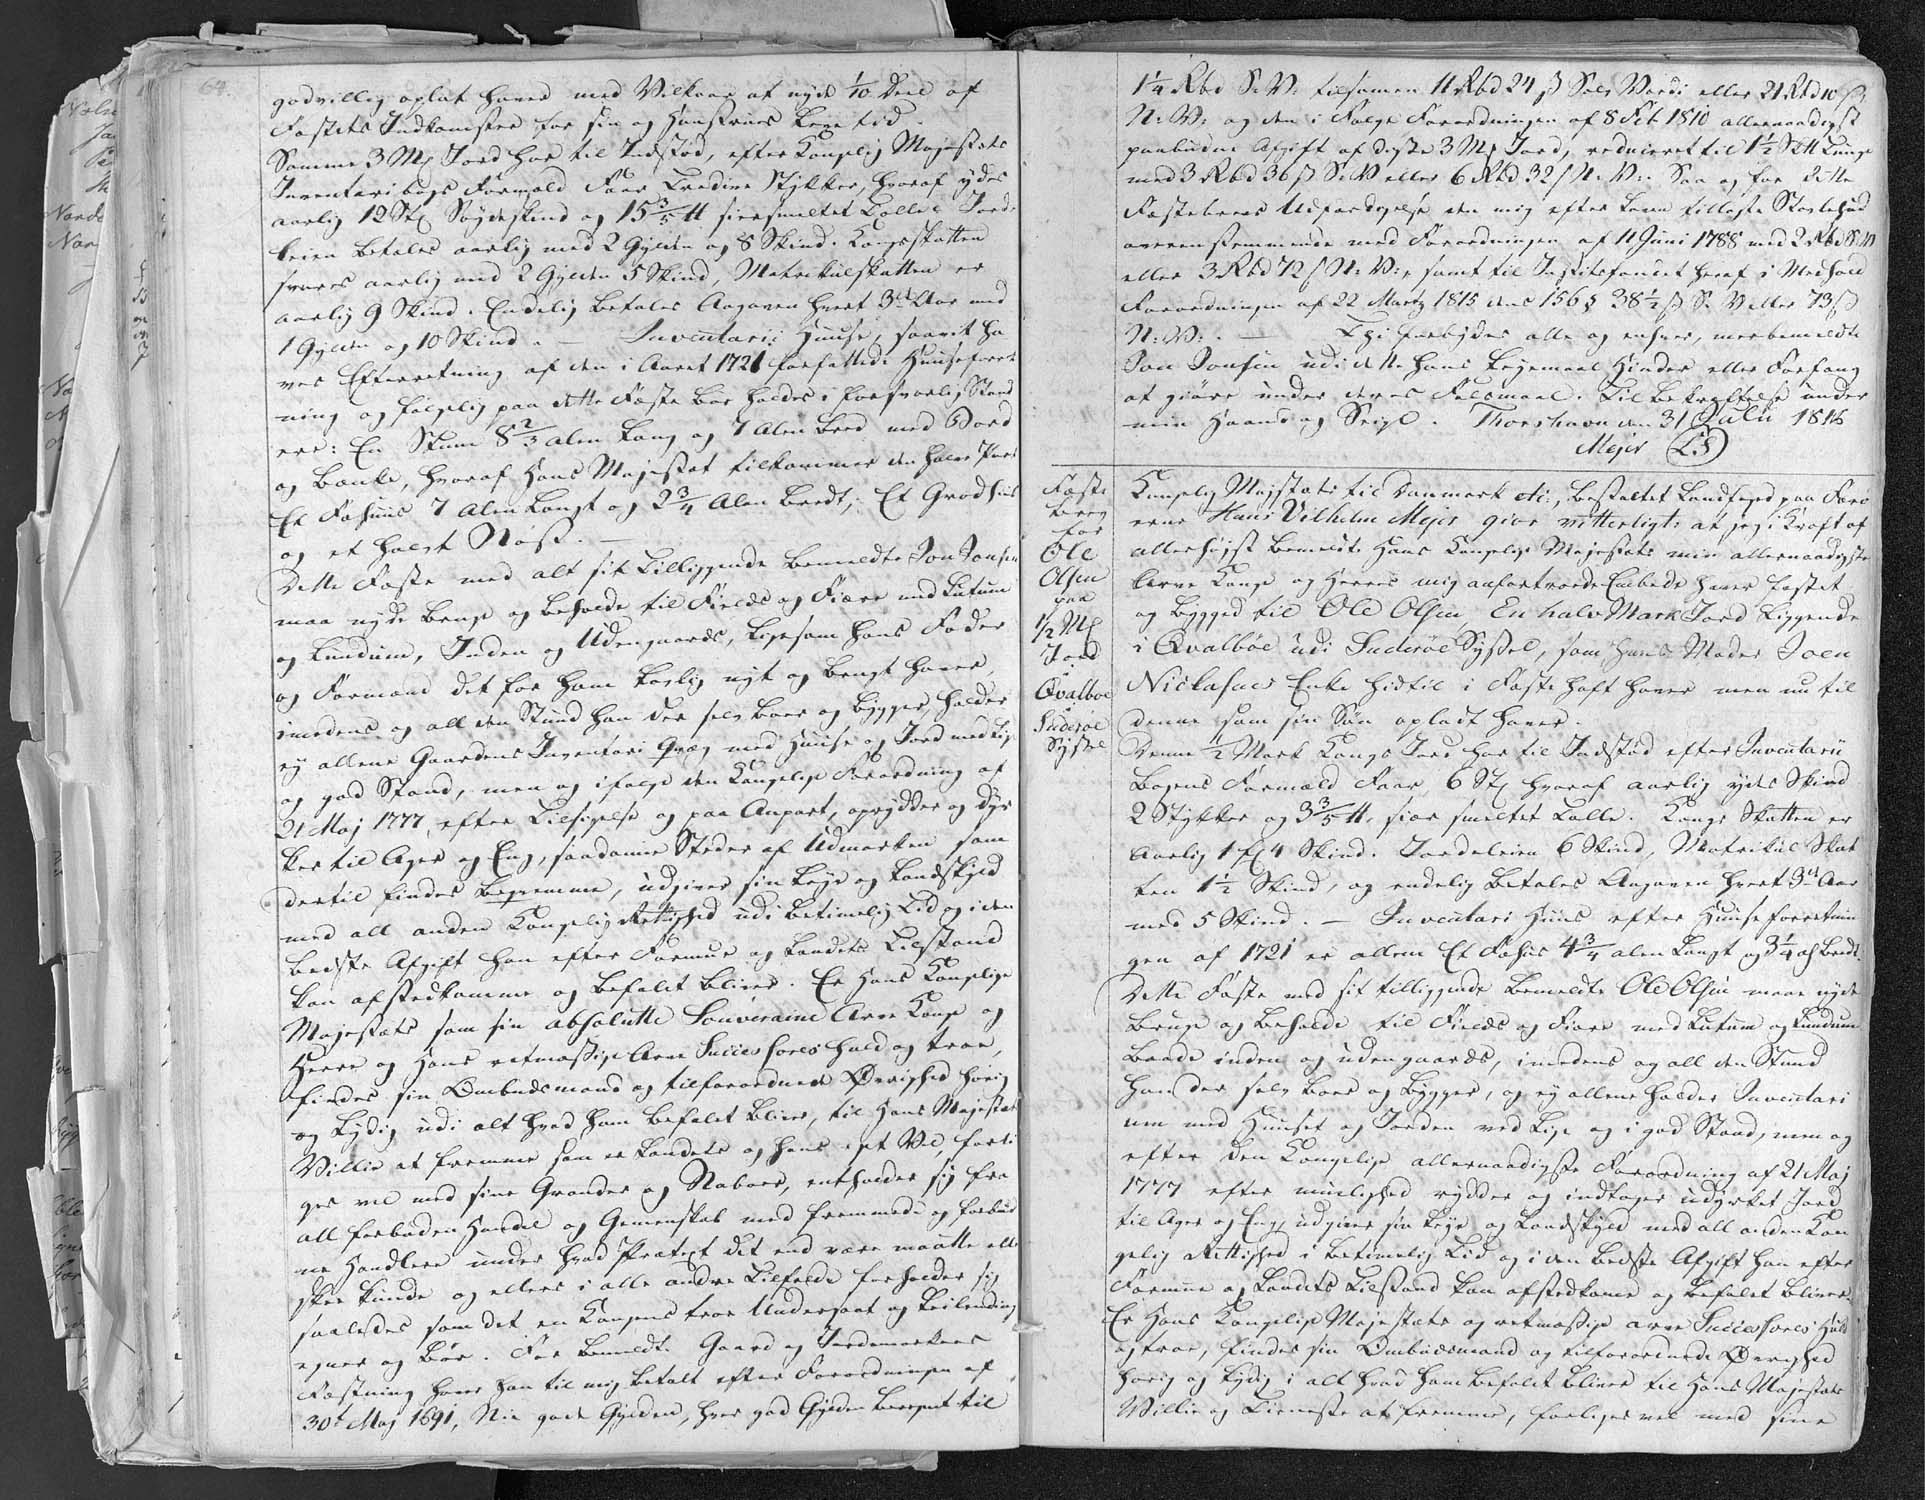 64.
godvillig oplat haver med Vilkaar at nyde 1/10 Deel af
Fæstets Indkomster for sin og Hustrues Leve tid.
Samme 3 Mk Jord har til Indstød, efter Kongelig Majestæts
Inventarii bogs Formæld Faar Tredive Stykker, hvoraf ydes
aarlig 12 Stk Søydeskind og 15 3/5 ℔ siersmeltet Tallig. Jorde
leien betales aarlig med 2 Gylden og 8 Skind. Kongsskatten
svares aarlig med 2 Gylden 5 Skind, Matrikulskatten er
aarlig 9 Skind. Endelig betales Aagaven hvert 3die Aar med
1 Gylden og 10 Skind. — Inventarii Huuse, saavit ha
ves Efterretning af den i Aaret 1721 forfattede Huuseforret
ning og følgelig paa dette Fæste bør holdes i forsvarlig Stand
ere: En Stue 8 2/3 Alen lang og 7 Alen bred med Bord
og Bænke, hvoraf Hans Majestæt tilkommer den halve Part
Et Fæhuus 7 Alen langt og 2 3/4 Alen bredt, Et Grødhuus
og et halvt Nøst. —
Dette Fæste med alt sit tilliggende bemeldte Jon Jonsen
maa nyde bruge og beholde til Fields og Fiære med Lutum
og Lundum, Inden og Udengaards, ligesom hans Fader
og Formand det før ham lovlig nyt og brugt haver,
imedens og all den Stund han der selv boer og bygger, holder
ey allene Gaardens Inventarii Qvæg med Huuse og Jord ved Lige
og god Stand, men og ifølge den Kongelige Forordning af
21 Maj 1777, efter Tilsigelse og paa Anpart, oprydder og dyr
ker til Ager og Eng, saadanne Steder af Udmarken som
dertil findes beqvemme, udgiver sin Leye og Landskyld
med all anden Kongelig Rettighed udi betimelig Tid og i den
bedste Afgift han efter Formue og Landets Tilstand
kan afstedkomme og befalet bliver. Er Hans Kongelige
Majestæts som sin absolutte Souveraine Arve Konge og
Herre og Hans retmæssige Arve Successores huld og troe,
findes sin Ombudsmand og tilforordnede Øvrighed hørig
og lydig udi alt hvad ham befalet bliver, til Hans Majestæts
Villie at fremme som er Landets og hans eget Vel, forli
ges vel med sine Grander og Naboer, entholder sig fra
all forbuden Handel og Gemenskab med fremmede og forbud
ne Handlere under hvad Prætext det end være maatte eller
skee kunde og ellers i alle andre Tilfælde forholder sig
saaledes som det en Kongens troe Undersaat og Leilending
egner og bør. For bemeldte Gaard og Jordemarkens
Fæstning haver han til mig betalt efter Forordningen af
30te Maj 1691, Nie gode Gylden, hver god Gylden beregnet til
1 1/4 Rbd S: V: tilsamen 11 Rbd 24 ß Sølv Værdi eller 21 Rbd 10 ß
N: V: og den i Følge Forordningen af 8 Feb 1810 allernaadigst
paabudne Afgift af disse 3 Mk Jord, reduceret til 1 1/2
med 3 Rbd 36 ß S: V eller 6 Rbd 32 ß N: V:. Saa og for dette
Fæstebrevs Udfærdigelse den mig efter Loven tillagte
overensstemmende med Forordningen af 11 Juni 1788 med 2 Rbd S: V
eller 3 Rbd 72 ß N: V:, samt til Justitsfondet heraf i Medhold
Forordningen af 22 Martz 1815 dens 156 § 38 1/2 ß S: V eller 73 ß
N: V:. — Thi forbydes alle og enhver, meerbemeldte
Jon Jonsen udi dette hans Leyemaal Hinder eller Forfang
at giøre under deres Faldsmaal. Til Bekræftelse under
min Haand og Seigl. Thorshavn den 31 Julii 1818
Mejer (LS)
Fæste
brev
for
Ole
Olsen
paa
1/2 Mk
Jord
i
Qvalbøe
i
Suderøe
Syssel
Kongelig Majestæts til Danmark etc:, bestaltet Landfoged paa Færø
erne Hans Vilhelm Mejer giør vitterligt: at jeg i Kraft af
allerhøyst bemeldte Hans Kongelige Majestæts min allernaadigste
Arve Konge og Herres mig anfortroede Embede haver fæstet
og bygged til Ole Olsen, En halv Mark Jord liggende
i Qvalbøe udi Suderøe Syssel, som hans Moder Joen
Nickasens Enke hidtil i Fæste haft haver men nu til
denne som sin Søn opladt haver.
Denne 1/2 Mark Kongs Jord har til Indstød efter Inventarii
Bogens Formæld Faar, 6 Stk hvoraf aarlig ydes Skind
2 Stykker og 3 3/5 ℔ sier smeltet Tallig. Kongs Skatten er
Aarlig 1 Gl 4 Skind. Jordeleien 6 Skind, Matrikul Skat
ten 1 1/2 Skind, og endelig betales Aagaven hvert 3die Aar
med 5 Skind. — Inventarii Huus efter Huuseforretnin
gen af 1721 er allene Et Fæhus 4 3/4 alen langt og 3 1/4 al bredt.
Dette Fæste med sit tilliggende bemeldte Ole Olsen maae nyde
bruge og beholde til Fields og Fiære med Lutum og Lundum
baade inden og udengaards, imedens og all den Stund
han der selv boer og bygger, og ey allene holder Inventari
um med Huuset og Jorden ved Lige og i god Stand, men og
efter den Kongelige allernaadigste Forordning af 21 Maj
1777 efter muelighed rydder og indtager udyrket Jord
til Ager og Eng, udgiver sin Leye og Landskyld med all anden Kon
gelig Rettighed i betimelig Tid og i den bedste Afgift han efter
Formue og Landets Tilstand kan afstedkome og befalet bliver.
Er Hans Kongelige Majestæts og retmæssige arve Successores huld
og troe, findes sin Ombudsmand og tilforordnede Øvrighed
hørig og lydig i alt hvad ham befalet bliver til Hans Majestæts
Villie og Tieneste at fremme, forliges vel med sine